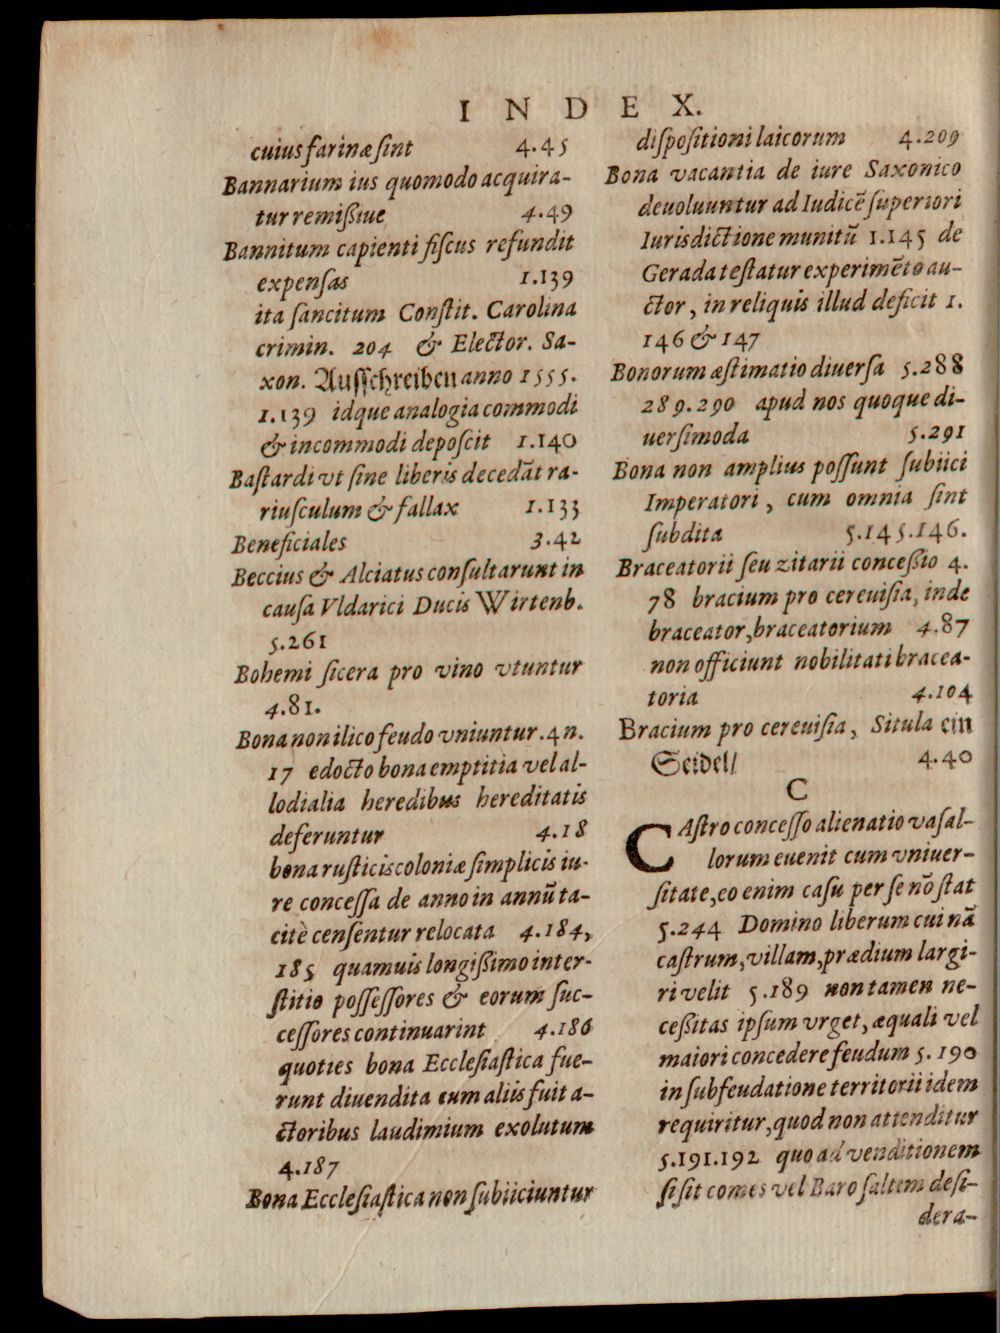 INDEX.
cuius farinæ sint 4.45
Bannarium ius quomodo acquira-
tur remißiue 4.49
Bannitum capienti fiscus refundit
expensas 1.139
ita sancitum Constit. Carolina
crimin. 204 & Elector. Sa-
xon. Ausschreiben anno 1555.
1.139 idque analogia commodi
& incommodi deposcit 1.140
Bastardi vt sine liberis decedāt ra-
riusculum & fallax 1.133
Beneficiales 3.42
Beccius & Alciatus consultarunt in
causa Vldarici Ducis Wirtenb.
5.261
Bohemi sicera pro vino vtuntur
4.81.
Bona non ilico feudo vniuntur. 4 n.
17 edocto bona emptitia vel al-
lodialia heredibus hereditatis
deferuntur 4.18
bona rusticis coloniæ simplicis iu-
re concessa de anno in annū ta-
citè censentur relocata 4.184,
185 quamuis longißimo inter-
stitio possessores & eorum suc-
cessores continuarint 4.186
quoties bona Ecclesiastica fue-
runt diuendita cum aliis fuit a-
ctoribus laudimium exolutum
4.187
Bona Ecclesiastica non subiiciuntur
dispositioni laicorum 4.209
Bona vacantia de iure Saxonico
deuoluuntur ad Iudicē superiori
Iurisdictione munitū 1.145 de
Gerada testatur experimēto au-
ctor, in reliquis illud deficit 1.
146 & 147
Bonorum æstimatio diuersa 5.288
289.290 apud nos quoque di-
uersimoda 5.291
Bona non amplius possunt subiici
Imperatori, cum omnia sint
subdita 5.145.146.
Braceatorii seu zitarii conceßio 4.
78 bracium pro cereuisia, inde
braceator, braceatorium 4.87
non officiunt nobilitati bracea-
toria 4.104
Bracium pro cereuisia, Situla ein
Seidel/ 4.40
C
CAstro concesso alienatio vasal-
lorum euenit cum vniuer-
sitate, eo enim casu per se nō stat
5.244 Domino liberum cui nā
castrum, villam, prædium largi-
ri velit 5.189 non tamen ne-
ceßitas ipsum vrget, æquali vel
maiori concedere feudum 5.190
in subfeudatione territorii idem
requiritur, quod non attenditur
5.191.192 quo ad venditionem
si sit comes vel Baro saltem desi-
dera-